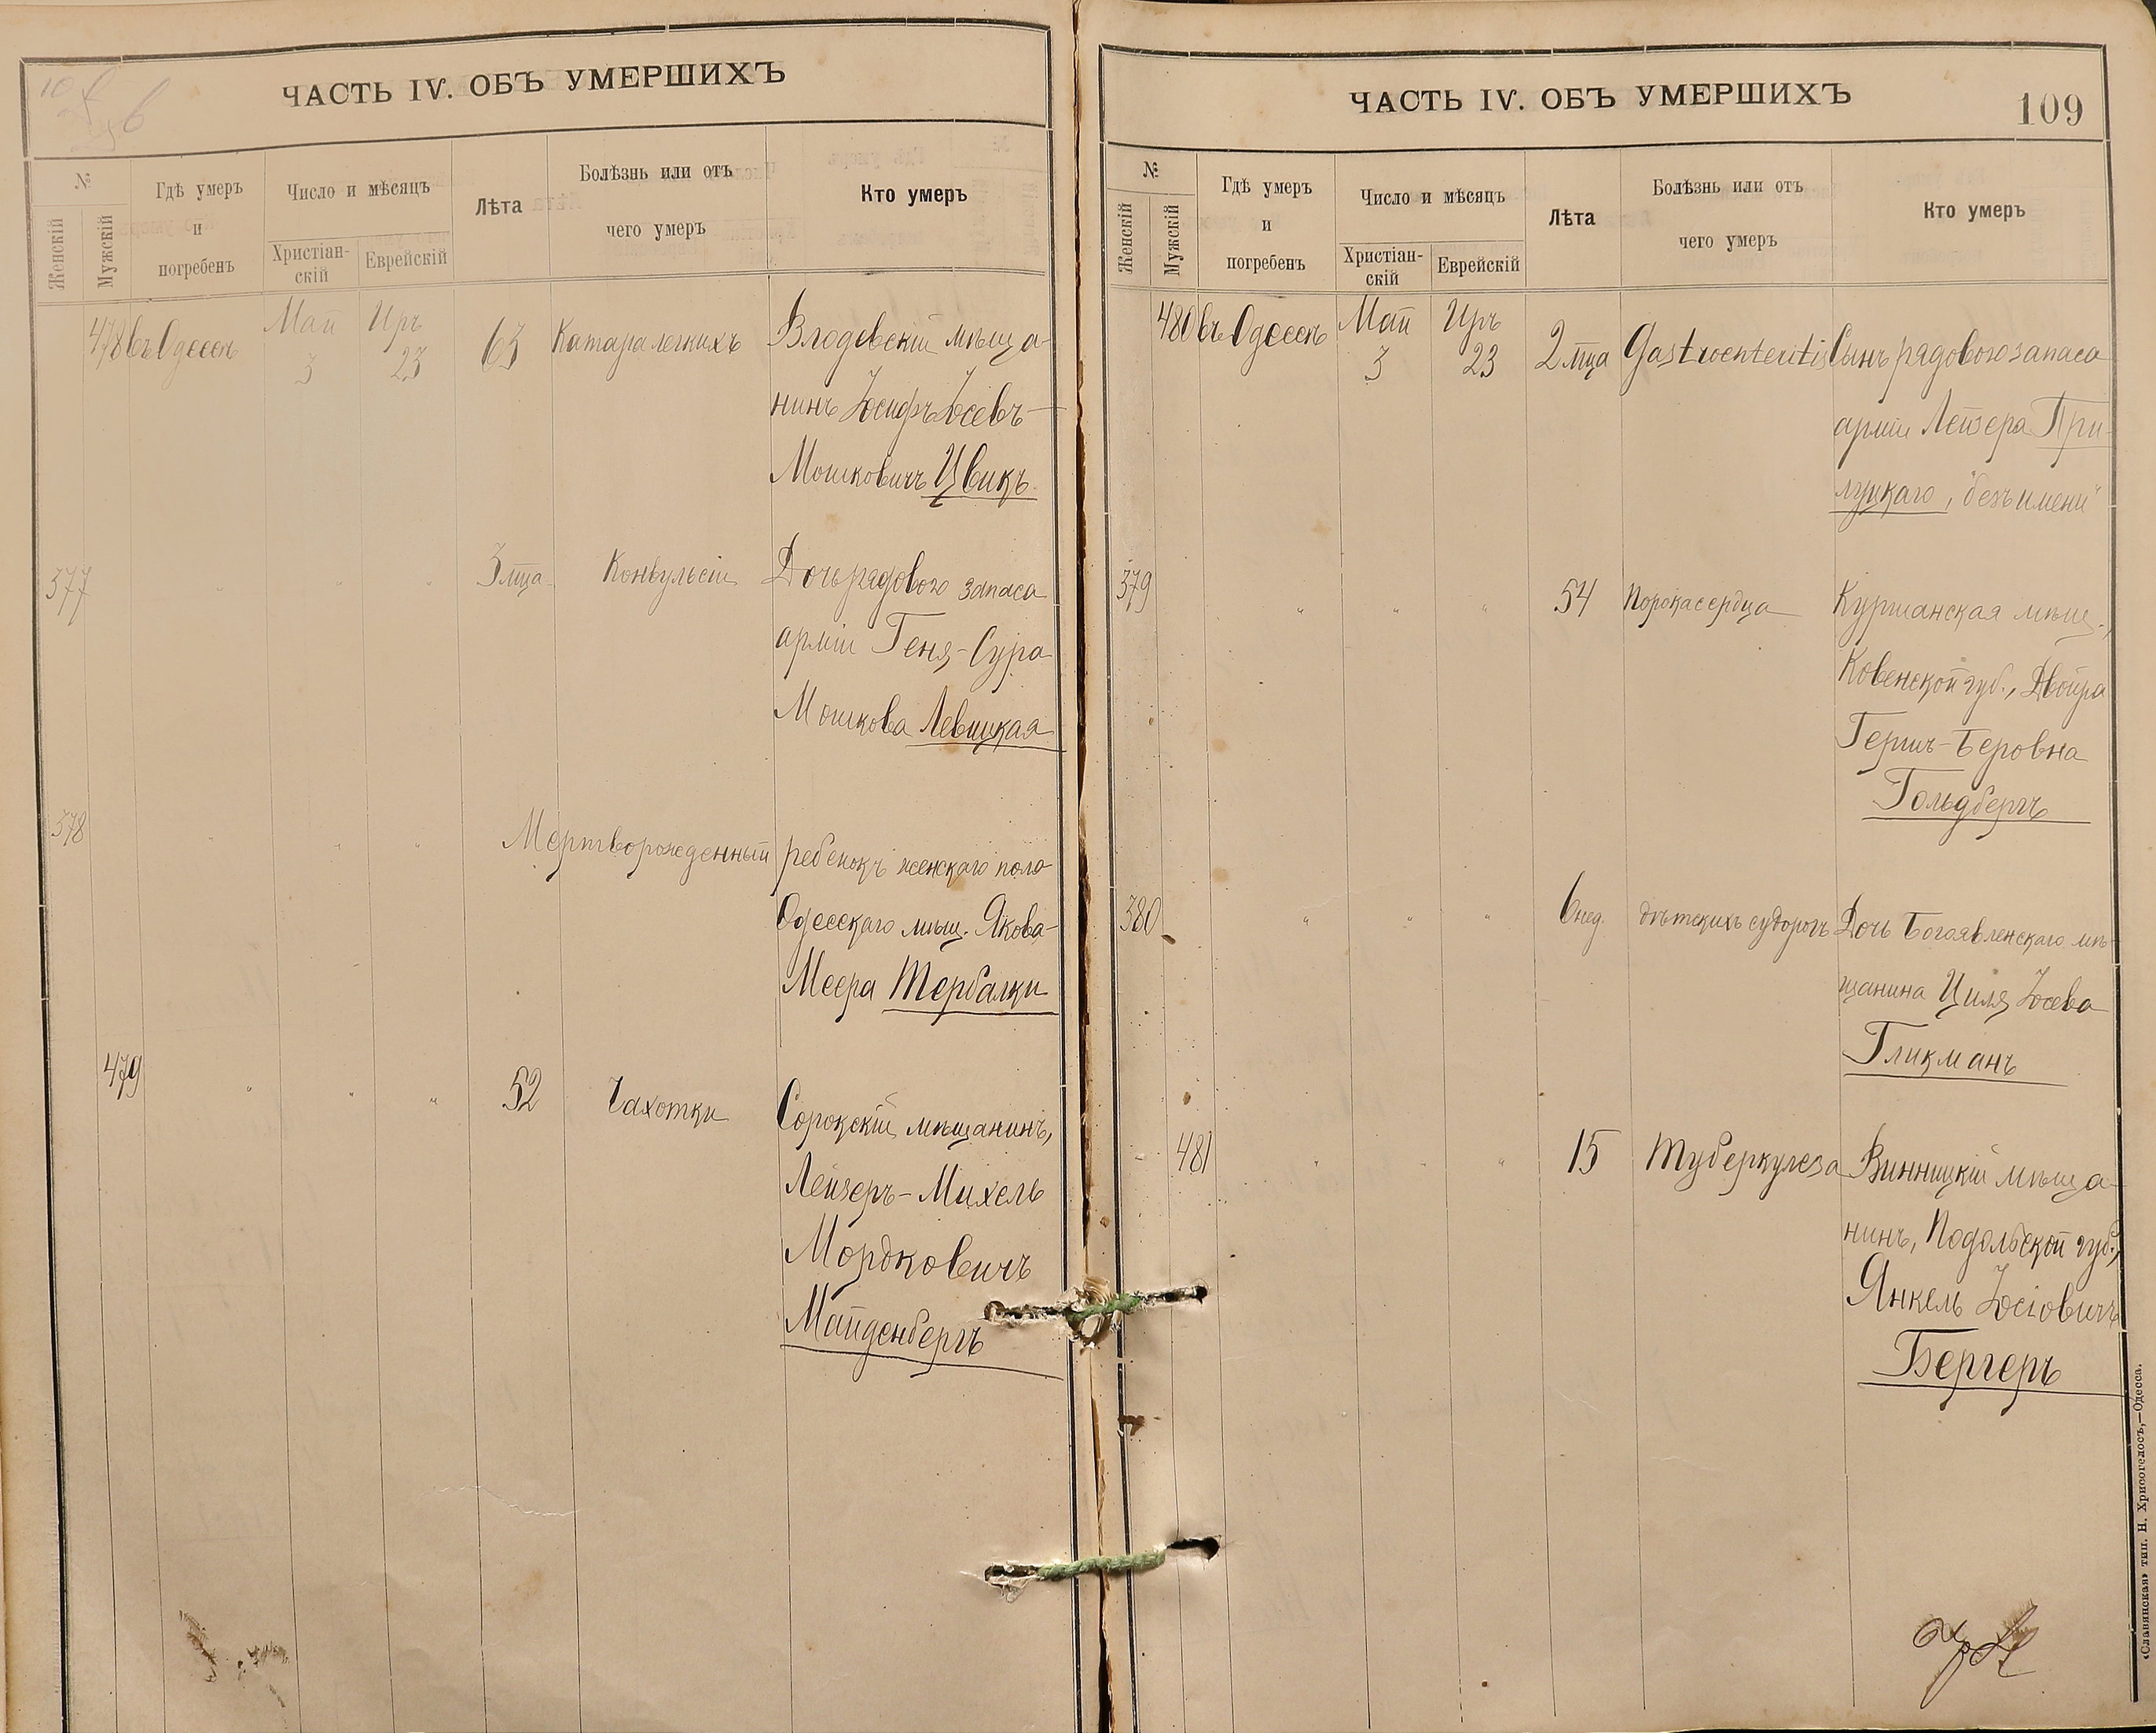 ЧАСТЬ IV. ОБЪ УМЕРШИХЪ
№
Женскій
Мужскій
Гдѣ умеръ
и
погребенъ
Число и мѣсяцъ
Христіан-
скій
Еврейскій
Лѣта
Болѣзнь или отъ
чего умеръ
Кто умеръ
478 въ Одессѣ Май 3 Иръ 23 63 Катара легкихъ
Влодевскій мѣща-
нинъ Іосифъ Іосевъ-
Мошковичъ Цвикъ.
377 " " " 3 мца Конвульсіи
Дочь рядового запаса
арміи Геня-Сура
Мошкова Левицкая
378 " " " Мертворожденный ребенокъ женскаго пола
Одесскаго мѣщ. Якова-
Меера Тербалки
479 " " " 52 Чахотки
Сорокскій мѣщанинъ,
Лейзеръ-Михель
Мордковичъ
Майденбергъ
ЧАСТЬ IV. ОБЪ УМЕРШИХЪ
109
№
Женскій
Мужскій
Гдѣ умеръ
и
погребенъ
Число и мѣсяцъ
Христіан-
скій
Еврейскій
Лѣта
Болѣзнь или отъ
чего умеръ
Кто умеръ
480 въ Одессѣ Май 3 Иръ 23 2 мца Gastroenteritis
Сынъ рядового запаса
арміи Лейзера При-
луцкаго, "безъ имени"
379 " " " 54 Порока сердца
Куршанская мѣщ.,
Ковенской губ., Двойра
Гершъ-Беровна
Гольдбергъ
380 " " " 6 нед. дѣтскихъ судорогъ
Дочь Богоявленскаго мѣ-
щанина Циля Іосева
Гликманъ
481 " " " 15 Туберкулеза
Винницкій мѣща-
нинъ, Подольской губ.,
Янкель Іосіовичъ
Бергеръ
«Славянская» тип. Н. Хрисогелосъ,—Одесса.